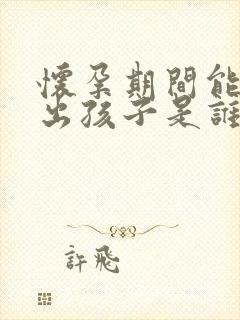 懷孕期間能
出孩子是誰
許飛